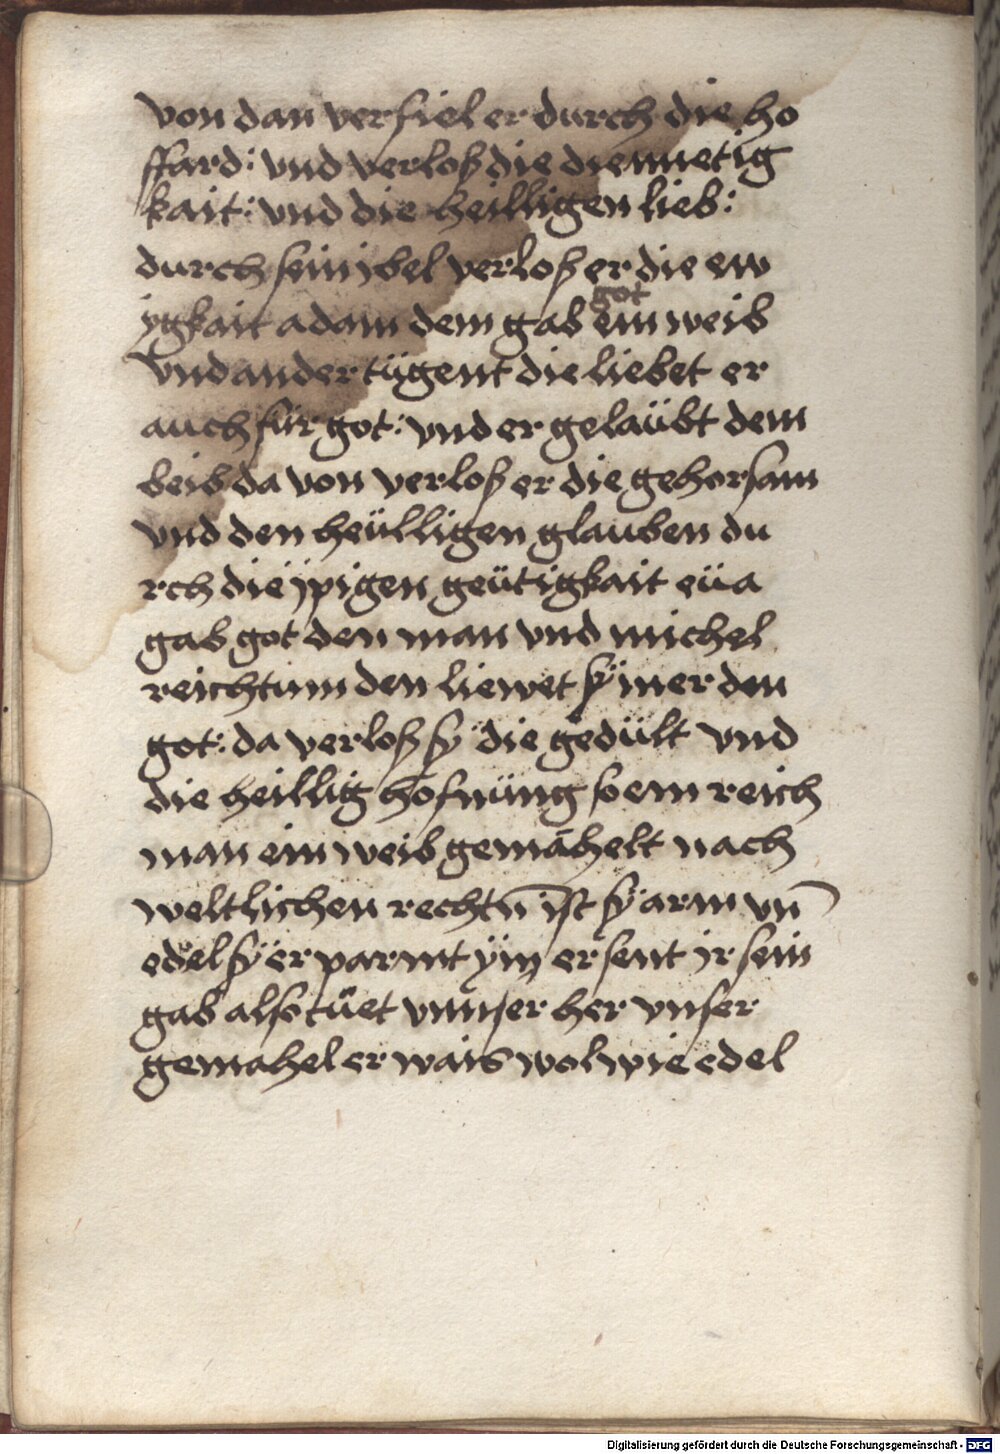 von dan verfiel er durch die ho
ffard: vnd verloß die diemuetig
kait: vnd die heilligen lieb:
durch sein jbel verloß er die ew
ÿgkait adam dem gab got ein weib
vnd ander tügent die liebet er
auch für got: vnd er gelaübt dem
beib da von verloß er die gehorsam
vnd den heülligen glauben du
rch die jpigen geütigkait eüa
gab got den man vnd michel
reichtum den liewet sÿ mer den
got: da verloß sÿ die gedült vnd
die heillig hofnüng so em reich
man ein weib gemähelt nach
weltlichen rechtn̄ ist sÿ arm vn̄
edel sÿ erparmt ÿm er sent jr sein
gab also tüet vnnser her vnser
gemahel er wais wol wie edel
Digitalisierung gefördert durch die Deutsche Forschungsgemeinschaft - DFG